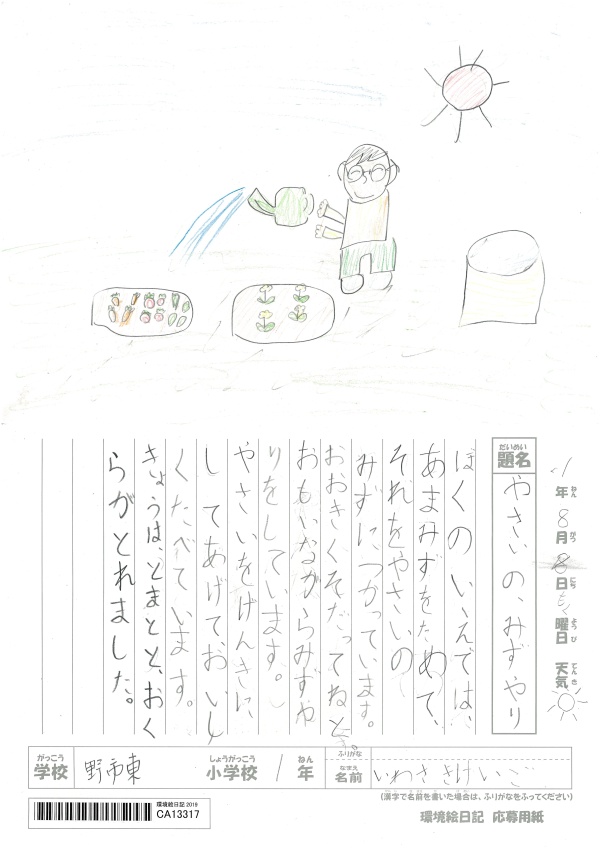 1年8月8日もく曜日 天気
ねん がつ にち ようび てんき
だいめい
題名
やさいの、みずやり
ぼくのいえでは、
あまみずをためて、
それをやさいの
みずにつかっています。
おおきくそだってねと。
おもいながらみずや
りをしています。
やさいをげんきに、
してあげておいし
くたべています。
きょうは、とまとと、おく
らがとれました。
がっこう
学校
野市東
しょうがっこう
小学校
1
ねん
年
ふりがな
なまえ
名前
いわさきけいご
(漢字で名前を書いた場合は、ふりがなをふってください)
環境絵日記 2019
CA13317
環境絵日記 応募用紙